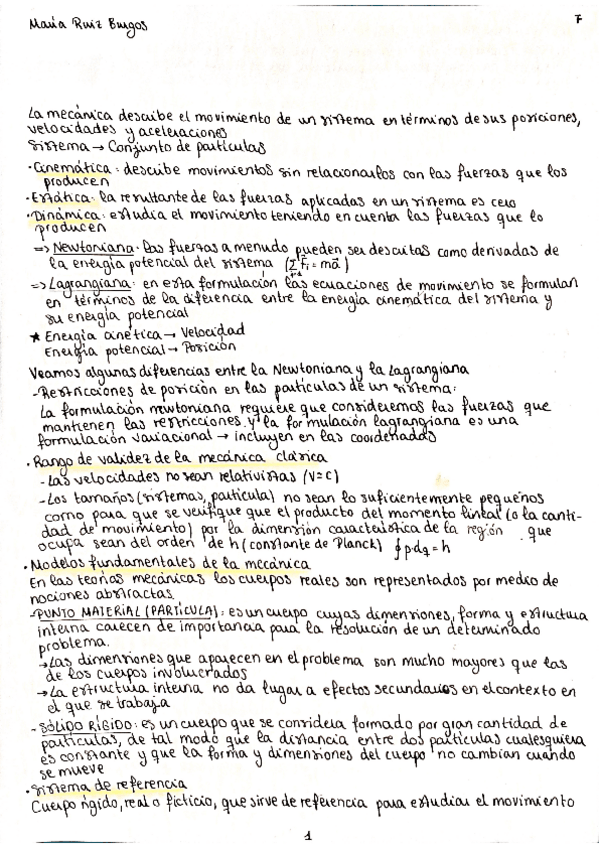 María Ruiz Burgos
7
La mecánica describe el movimiento de un sistema en términos de sus posiciones,
velocidades y aceleraciones
Sistema → Conjunto de partículas
· Cinemática: describe movimientos sin relacionarlos con las fuerzas que los
producen
· Estática: la resultante de las fuerzas aplicadas en un sistema es cero
· Dinámica: estudia el movimiento teniendo en cuenta las fuerzas que lo
producen
=> Newtoniana: las fuerzas a menudo pueden ser descritas como derivadas de
la energía potencial del sistema (Σ F⃗i = ma⃗)
=> Lagrangiana: en esta formulación las ecuaciones de movimiento se formulan
en términos de la diferencia entre la energía cinemática del sistema y
su energía potencial
★ Energía cinética → Velocidad
Energía potencial → Posición
Veamos algunas diferencias entre la Newtoniana y la Lagrangiana
- Restricciones de posición en las partículas de un sistema:
La formulación newtoniana requiere que consideremos las fuerzas que
mantienen las restricciones y la formulación lagrangiana es una
formulación variacional → incluyen en las coordenadas
· Rango de validez de la mecánica clásica
- Las velocidades no sean relativistas (v=c)
- Los tamaños (sistemas, partícula) no sean lo suficientemente pequeños
como para que se verifique que el producto del momento lineal (o la canti-
dad de movimiento) por la dimensión característica de la región que
ocupa sean del orden de h (constante de Planck) ∮ p dq = h
· Modelos fundamentales de la mecánica
En las teorías mecánicas los cuerpos reales son representados por medio de
nociones abstractas
- PUNTO MATERIAL (PARTÍCULA): es un cuerpo cuyas dimensiones, forma y estructura
interna carecen de importancia para la resolución de un determinado
problema.
→ Las dimensiones que aparecen en el problema son mucho mayores que las
de los cuerpos involucrados
→ La estructura interna no da lugar a efectos secundarios en el contexto en
el que se trabaja
- SÓLIDO RÍGIDO: es un cuerpo que se considera formado por gran cantidad de
partículas, de tal modo que la distancia entre dos partículas cualesquiera
es constante y que la forma y dimensiones del cuerpo no cambian cuando
se mueve
· Sistema de referencia
Cuerpo rígido, real o ficticio, que sirve de referencia para estudiar el movimiento
1